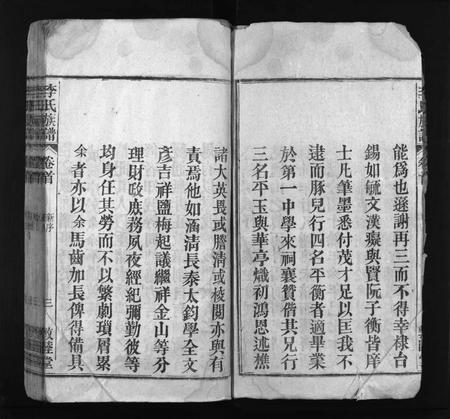 能爲也遜謝再三而不得幸棣台
錫如毓文漢癡與賢阮子衡皆庠
士凡筆墨悉付茂才足以匡我不
逮而豚兒行四名平衡者適畢業
於第一中學來祠襄贊偕其兄行
三名平玉與華亭熾初鴻恩述樵
諸大英畏或謄清或校閱亦與有
責焉他如涵清長泰太鈞學全文
彥吉祥鹽梅起議繼祥金山等分
理財政庶務夙夜經紀彌勤彼等
均身任其勞而不以繁劇瑣屑累
余者亦以余馬齒加長俾得備具
李氏族譜
卷首
新序
三
敦睦堂